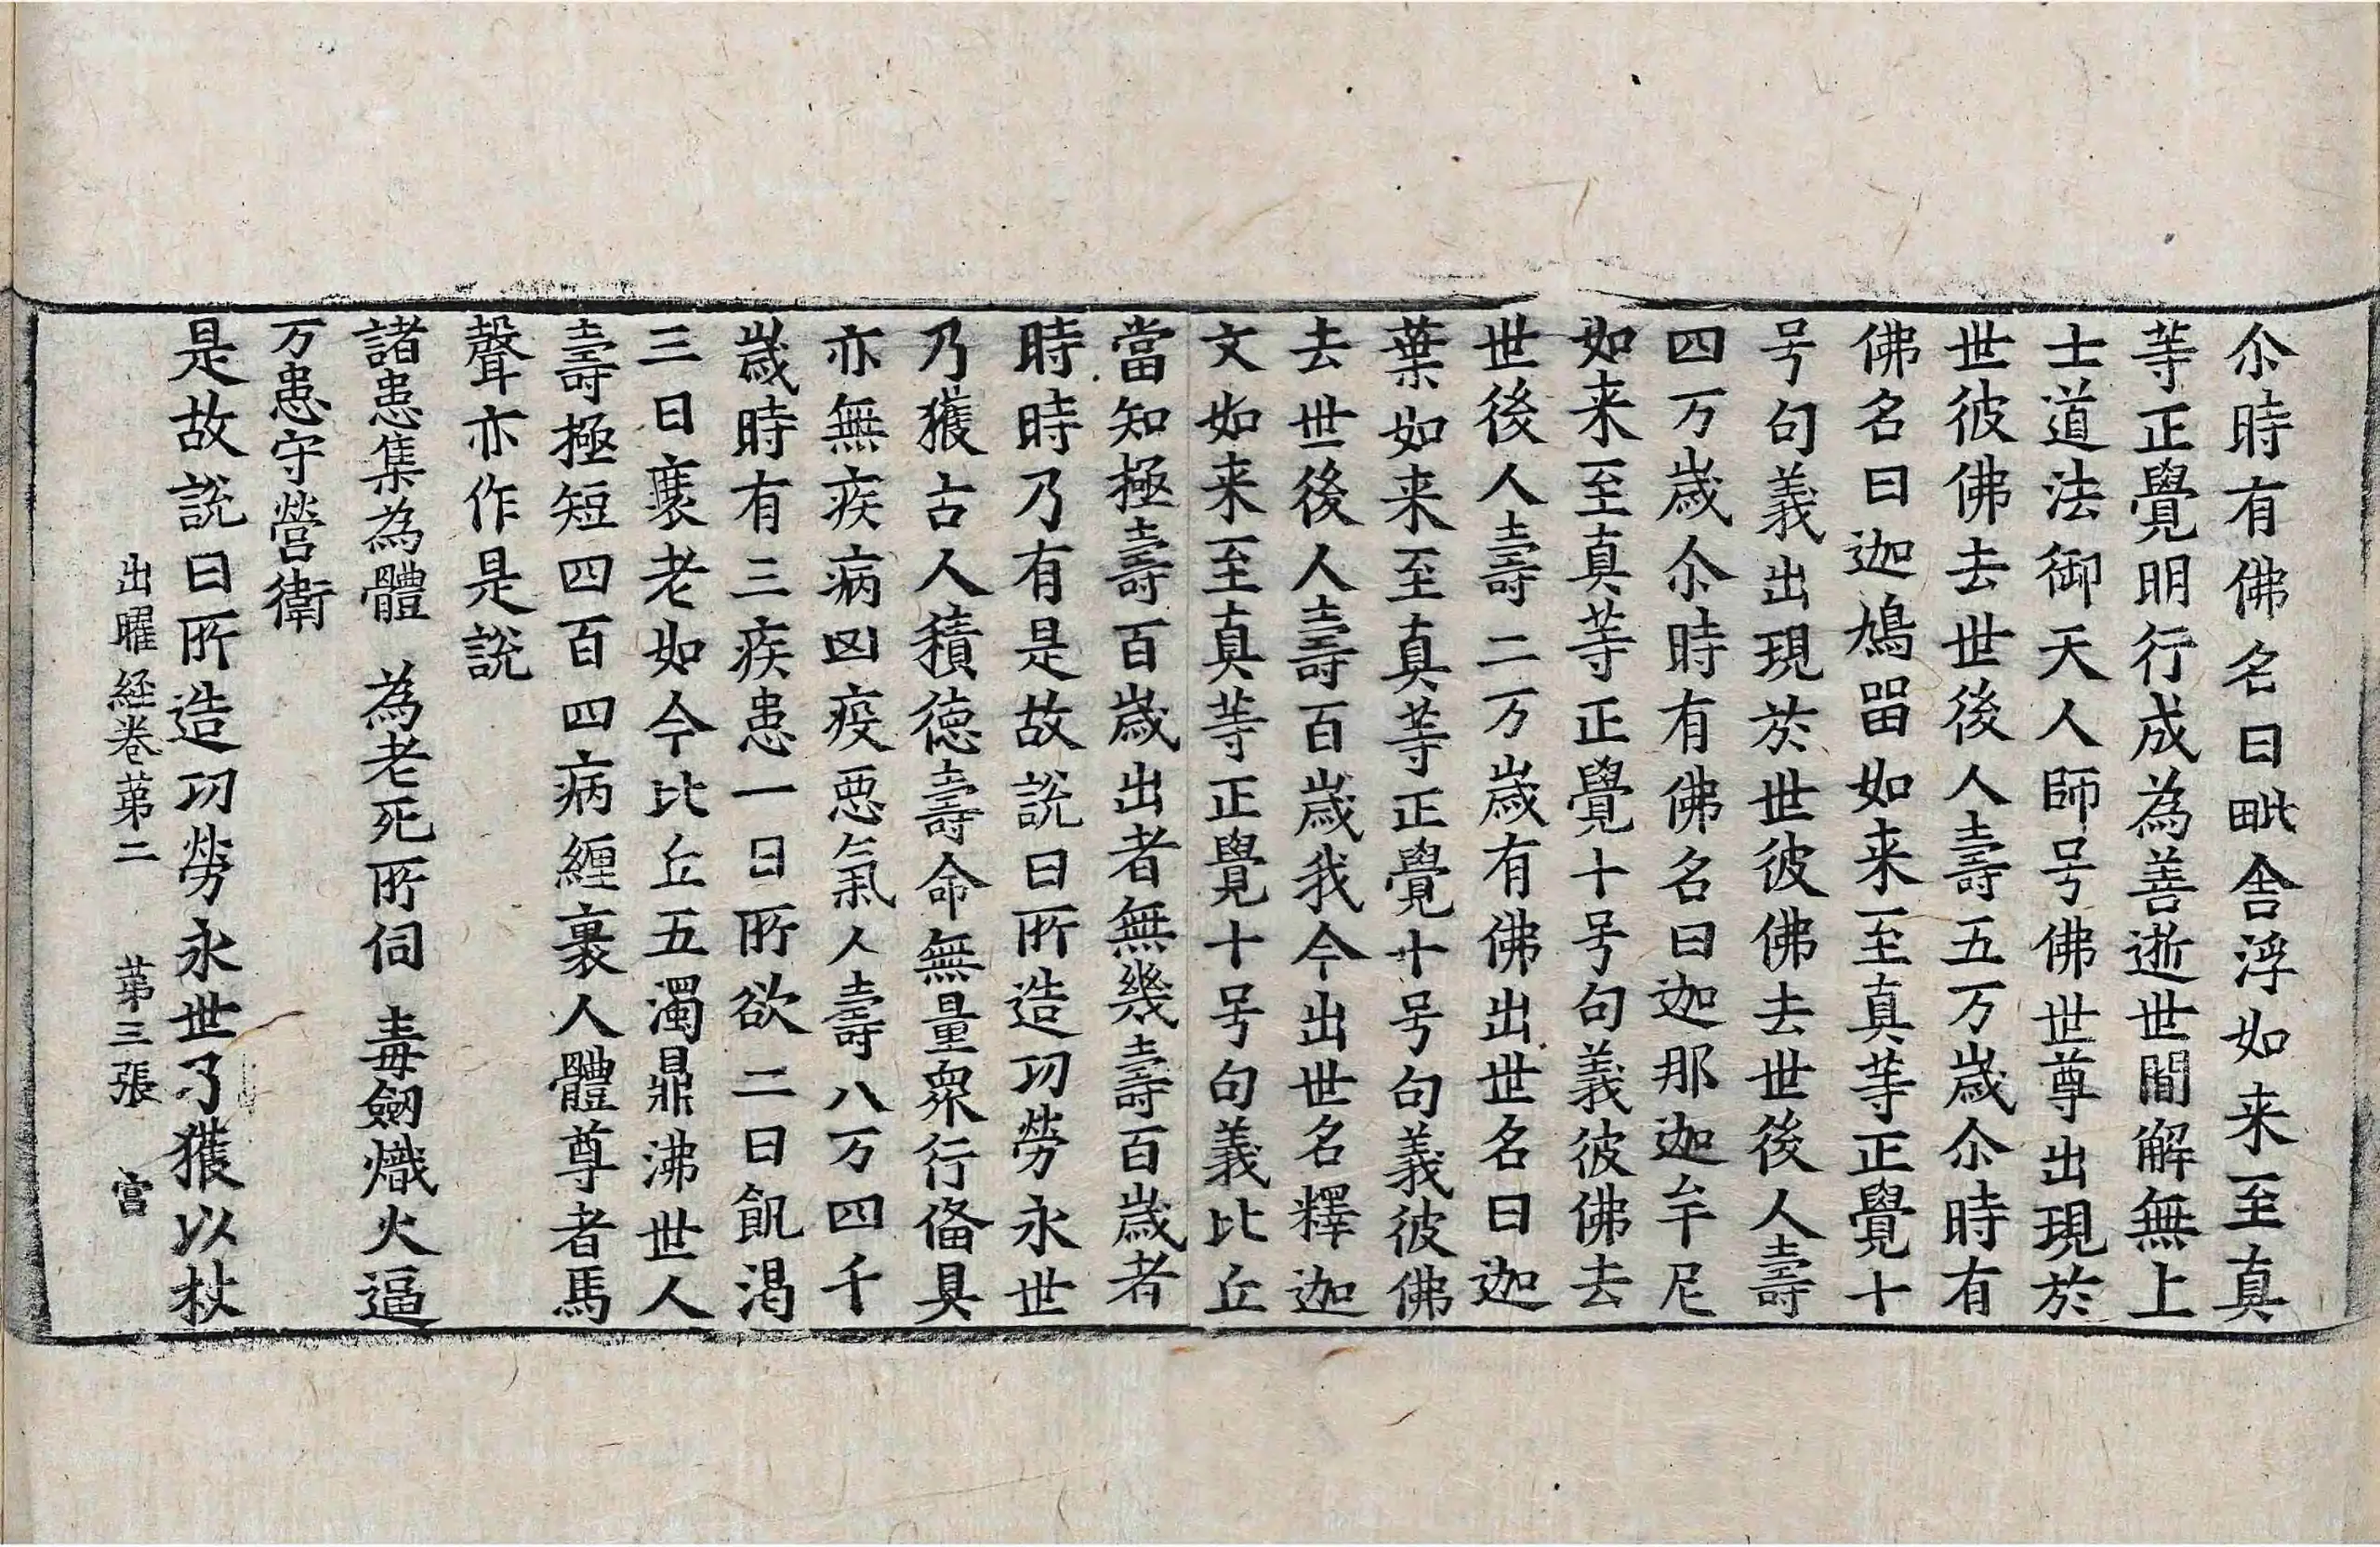 尒時有佛名曰毗舍浮如来至真
等正覺明行成為善逝世間解無上
士道法御天人師号佛世尊出現於
世彼佛去世後人壽五万歲尒時有
佛名曰迦鳩留如来至真等正覺十
号句義出現於世彼佛去世後人壽
四万歲尒時有佛名曰迦那迦牟尼
如来至真等正覺十号句義彼佛去
世後人壽二万歲有佛出世名曰迦
葉如来至真等正覺十号句義彼佛
去世後人壽百歲我今出世名釋迦
文如来至真等正覺十号句義比丘
當知極壽百歲出者無幾壽百歲者
時時乃有是故説曰所造功勞永世
乃獲古人積德壽命無量衆行俻具
亦無疾病凶疫惡氣人壽八万四千
歲時有三疾患一曰所欲二曰飢渴
三曰衰老如今比丘五濁鼎沸世人
壽極短四百四病纏裹人體尊者馬
聲亦作是説
諸患集為體 為老死所伺 毒劒熾火逼
万患守營衛
是故説曰所造功勞永世乃獲以杖
出曜経卷苐二 苐三張 宫